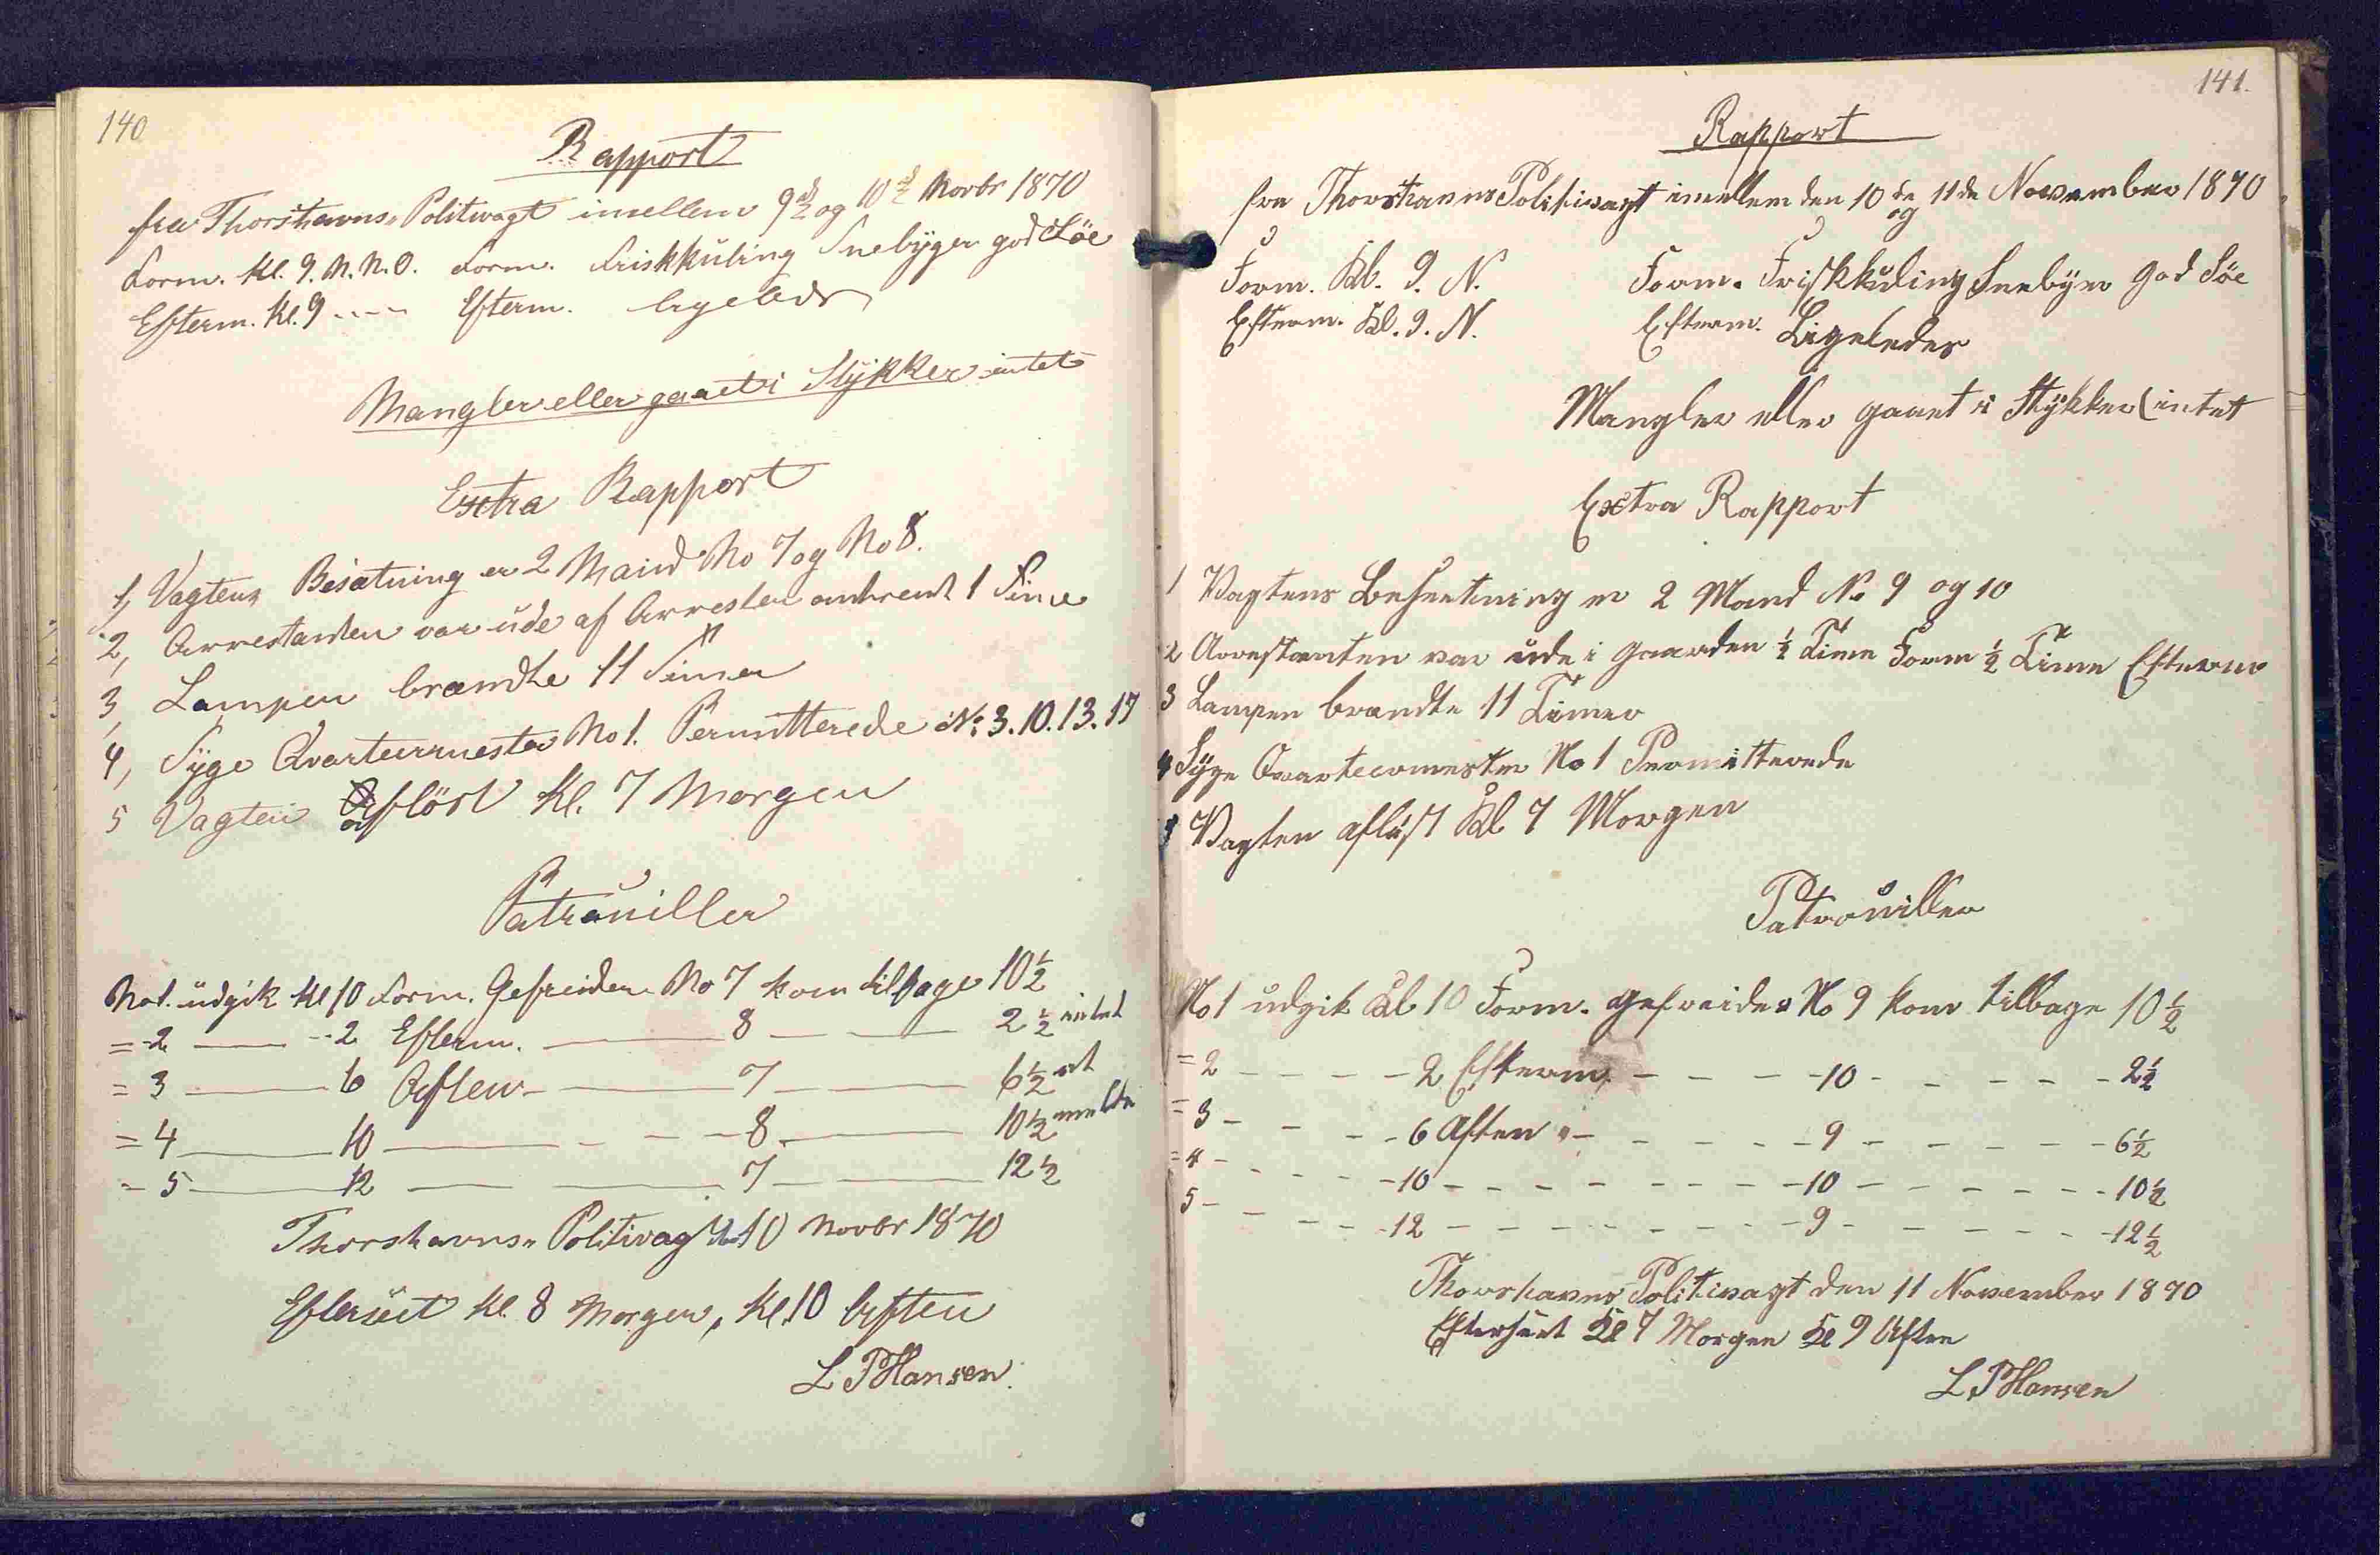 140
Rapport
fra Thorshavns Politivagt imellem 9de og 10de Novbr 1870
Form. Kl. 9. N.N.O. Form. Friskkuling Snebyger god Söe
Efterm. Kl. 9 ---- Efterm. ligeledes
Mangler eller gaaet i Stykker intet
Extra Rapport
1, Vagtens Besætning er 2 Mand No 7 og No 8.
2, Arrestanten var ude af Arresten omtrent 1 Time
3, Lampen brændte 11 Timer
4, Syge Qvarteermester No 1. Permitterede No 3. 10. 13. 17
5 Vagten aflöst Kl. 7 Morgen
Patrouiller
No 1. udgik Kl 10 Form. Gefreider No 7 kom tilbage 10½
= 2 — - 2 Efterm. — 8 — 2½ intet
= 3 — 6 Aften — 7 — 6½ at
= 4 — 10 — 8. — 10½ melde
- 5 — 12 — 7 — 12½
Thorshavns Politivagt d 10 Novbr 1870
Efterseet Kl. 8 Morgen, Kl. 10 Aften
L P Hansen.
141.
Rapport
fra Thorshavns Politivagt imellem den 10de og 11de November 1870
Form. Kl. 9. N. Form. Friskkuling Snebyer God Söe
Efterm. Kl. 9. N. Efterm. Ligeledes
Mangler eller gaaet i Stykker intet
Extra Rapport
1 Vagtens Besætning er 2 Mand No 9 og 10
2 Arrestanten var ude i Gaarden ½ Time Form ½ Time Efterm
3 Lampen brændte 11 Timer
4 Syge Qvarteermester No 1 Permitterede
5 Vagten aflöst Kl 7 Morgen
Patrouiller
No 1 udgik Kl 10 Form. Gefreider No 9 kom tilbage 10½
= 2 - - - - 2 Efterm. - - - - 10 - - - - - 2½
= 3 - - - - 6 Aften - - - - - 9 - - - - - 6½
= 4 - - - - - 10 - - - - - - - - 10 - - - - - - 10½
5 - - - - - 12 - - - - - - - - 9 - - - - - - 12½
Thorshavns Politivagt den 11 November 1870
Efterseet Kl 7 Morgen Kl 9 Aften
L P Hansen